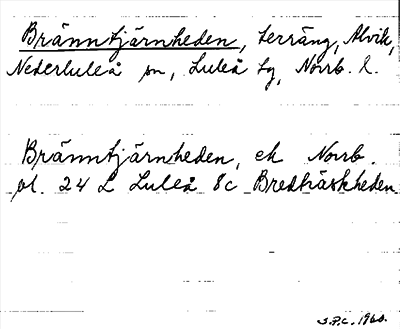 Bränntjärnheden, terräng, Alvik,
Nederluleå sn, Luleå tg, Norrb. l.
Bränntjärnheden, ek Norrb.
bl. 24 L Luleå 8c Bredträskheden
S.P.C. 1960.